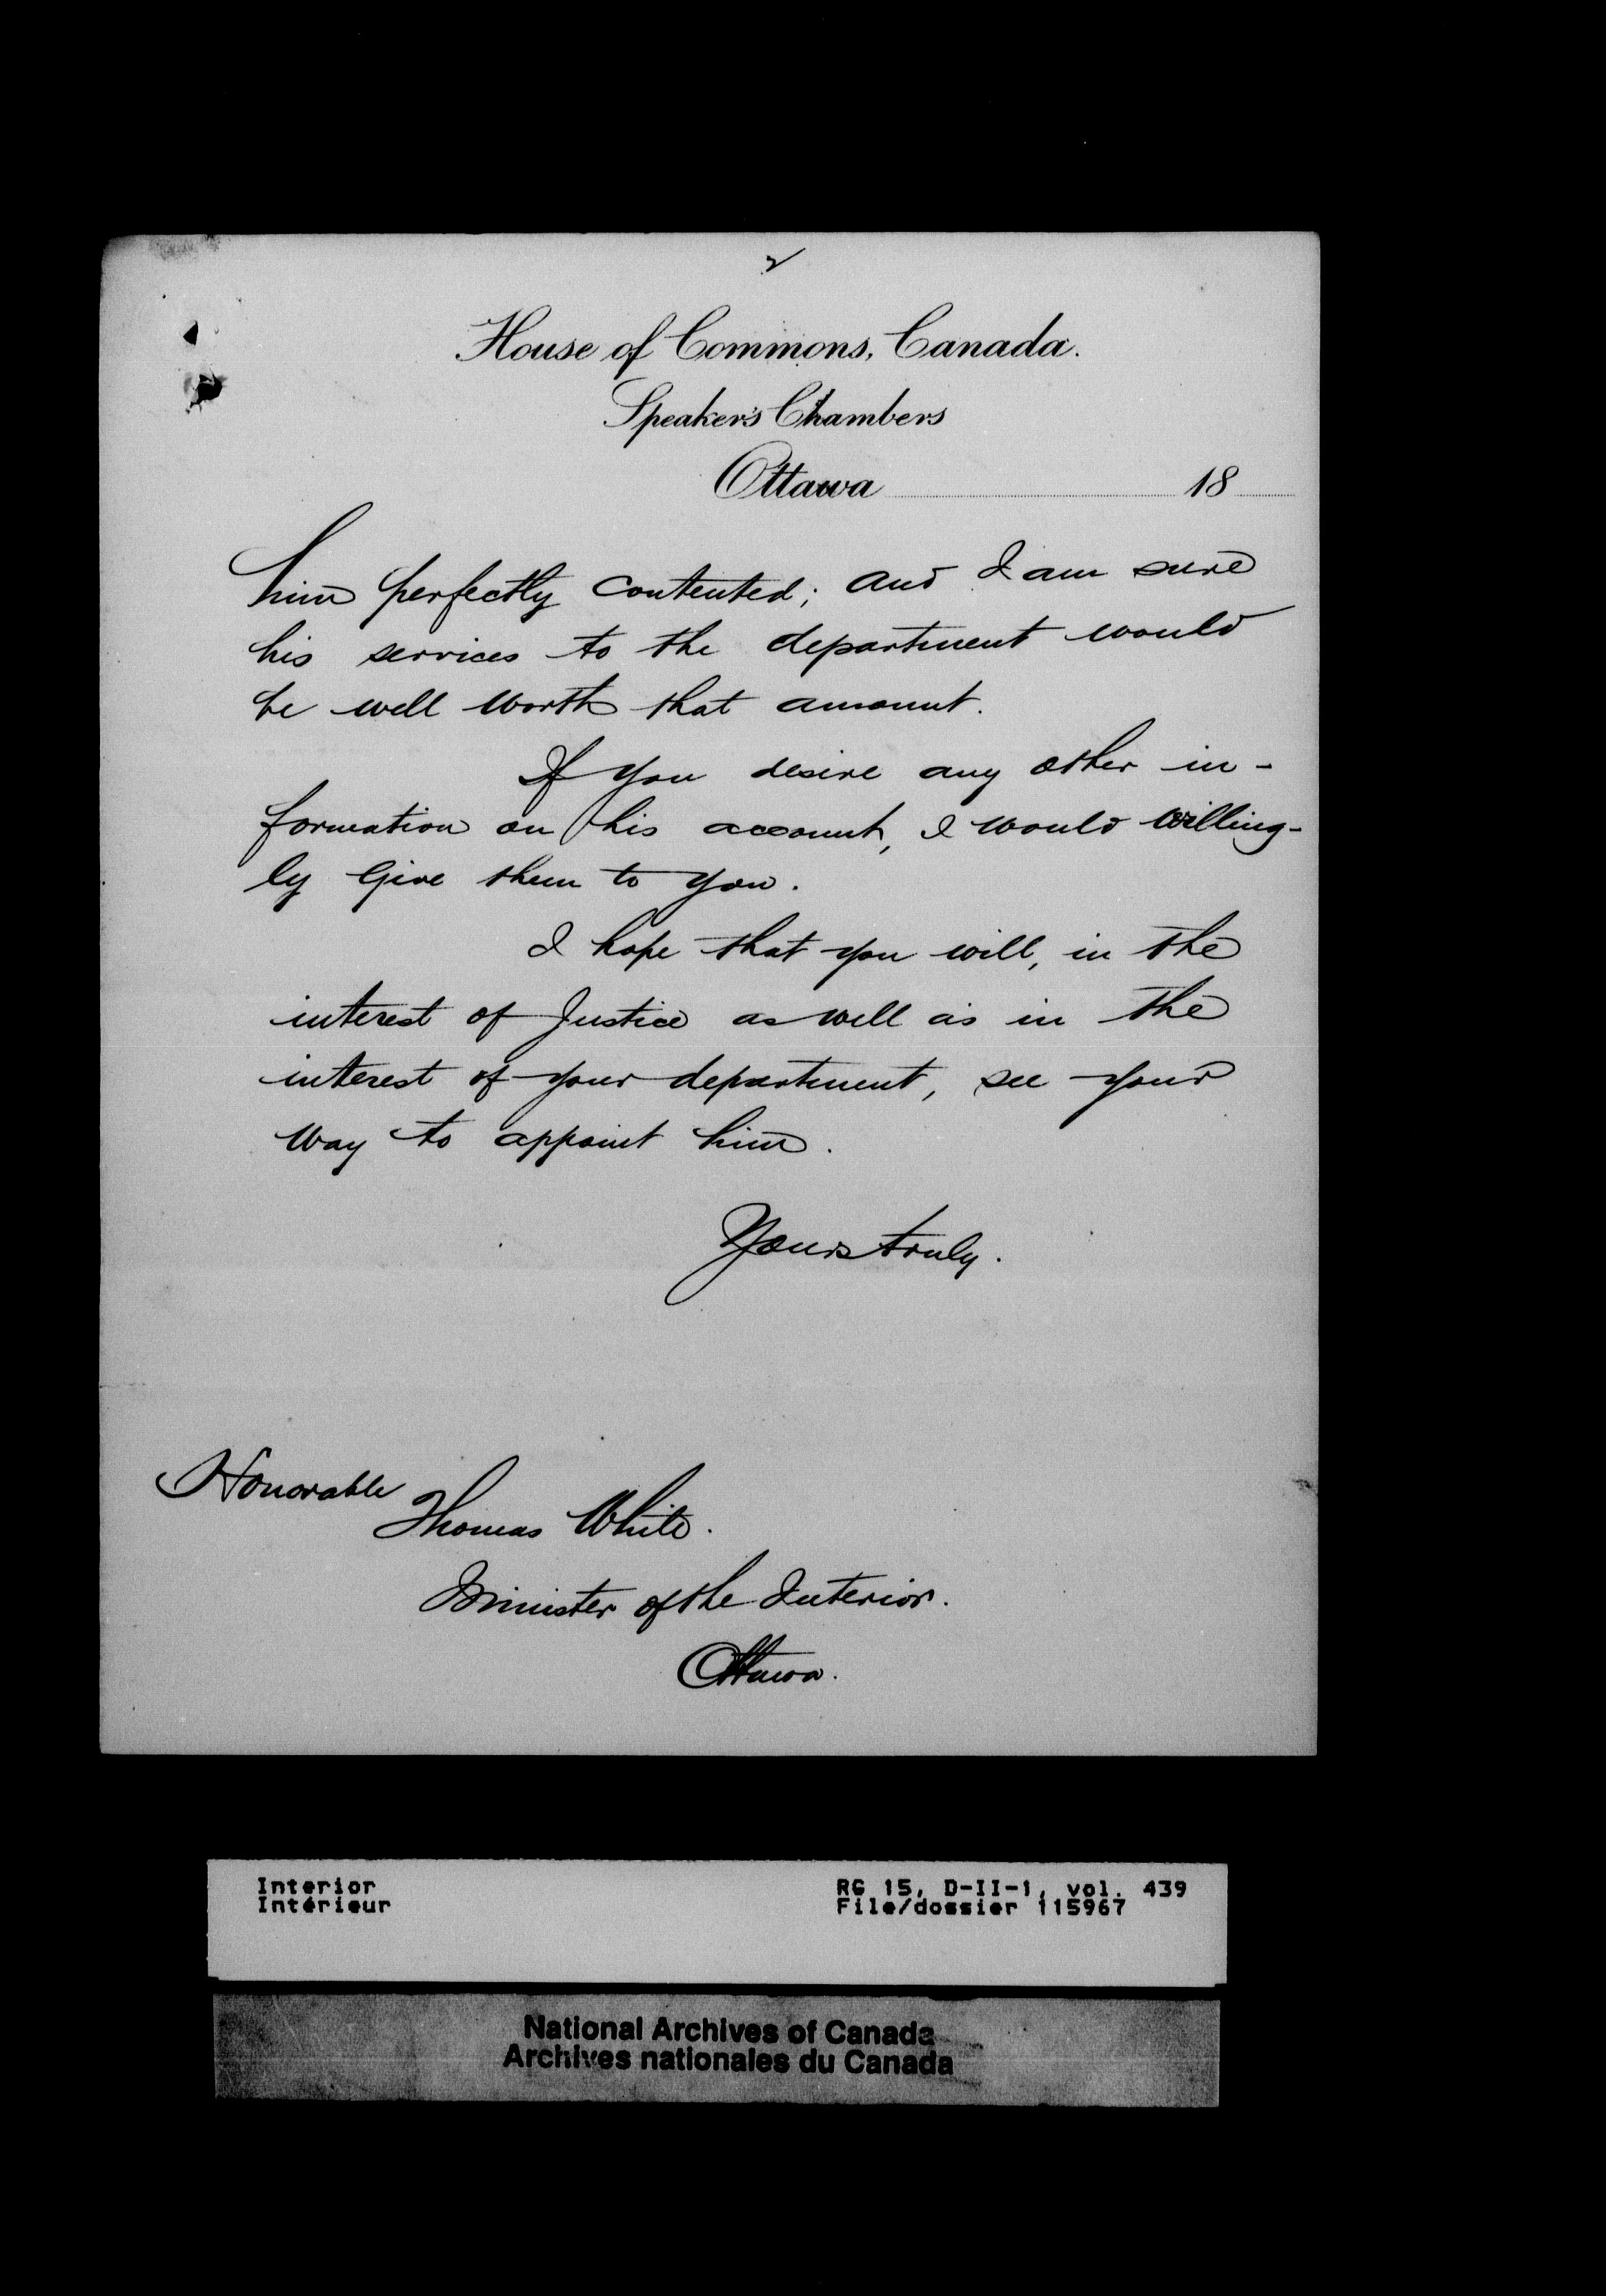 2
House of Commons, Canada.
Speaker's Chambers
Ottawa 18
him perfectly contented; and I am sure
his services to the department would
be well worth that amount.
If you desire any other in-
formation on his account, I would willing-
ly give them to you.
I hope that you will, in the
interest of Justice as well as in the
interest of your department, see your
way to appoint him.
Yours truly.
Honorable
Thomas White.
Minister of the Interior.
Ottawa.
Interior
Intérieur
RG 15, D-II-1, vol. 439
File/dossier 115967
National Archives of Canada
Archives nationales du Canada